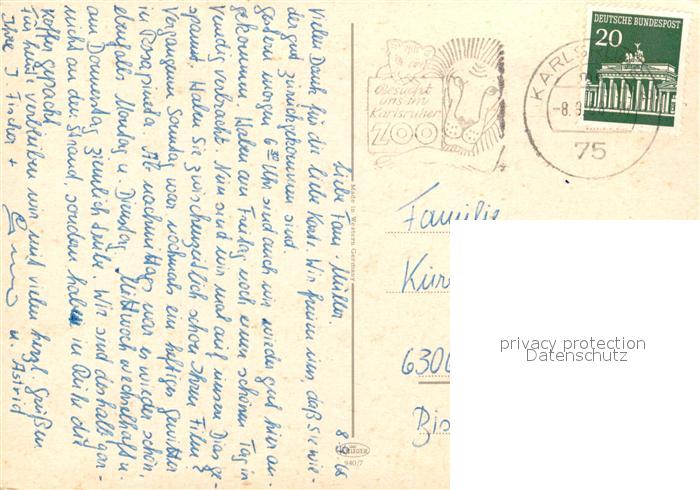 8.9.66
Liebe Fam. Müller.
Vielen Dank für die liebe Karte. Wir freuen uns, daß Sie wie-
der gut zurückgekommen sind.
Gestern morgen 6 30 Uhr sind auch wir wieder gut hier an-
gekommen. Haben am Freitag noch einen schönen Tag in
Venedig verbracht. Nun sind wir mal auf unsere Dias ge-
spannt. Haben Sie zwischenzeitlich schon Ihren Film?
Vergangenen Sonntag war nochmals ein heftiges Gewitter
in Rosapineta. Ab nachmittags war es wieder schön,
ebenfalls Montag u. Dienstag. Mittwoch wechselhaft u.
am Donnerstag ziemlich trübe. Wir sind deshalb gar-
nicht an den Strand, sondern haben in Ruhe die
Koffer gepackt.
Für heute verbleiben wir mit vielen herzl. Grüßen
Ihre I. Fischer +
u. Astrid
Made in Western Germany
KRÜGER
940/7
Besucht
uns im
Karlsruher
ZOO
KARLS
-8.9.
75
DEUTSCHE BUNDESPOST
20
Familie
Kur
6306
privacy protection
Datenschutz